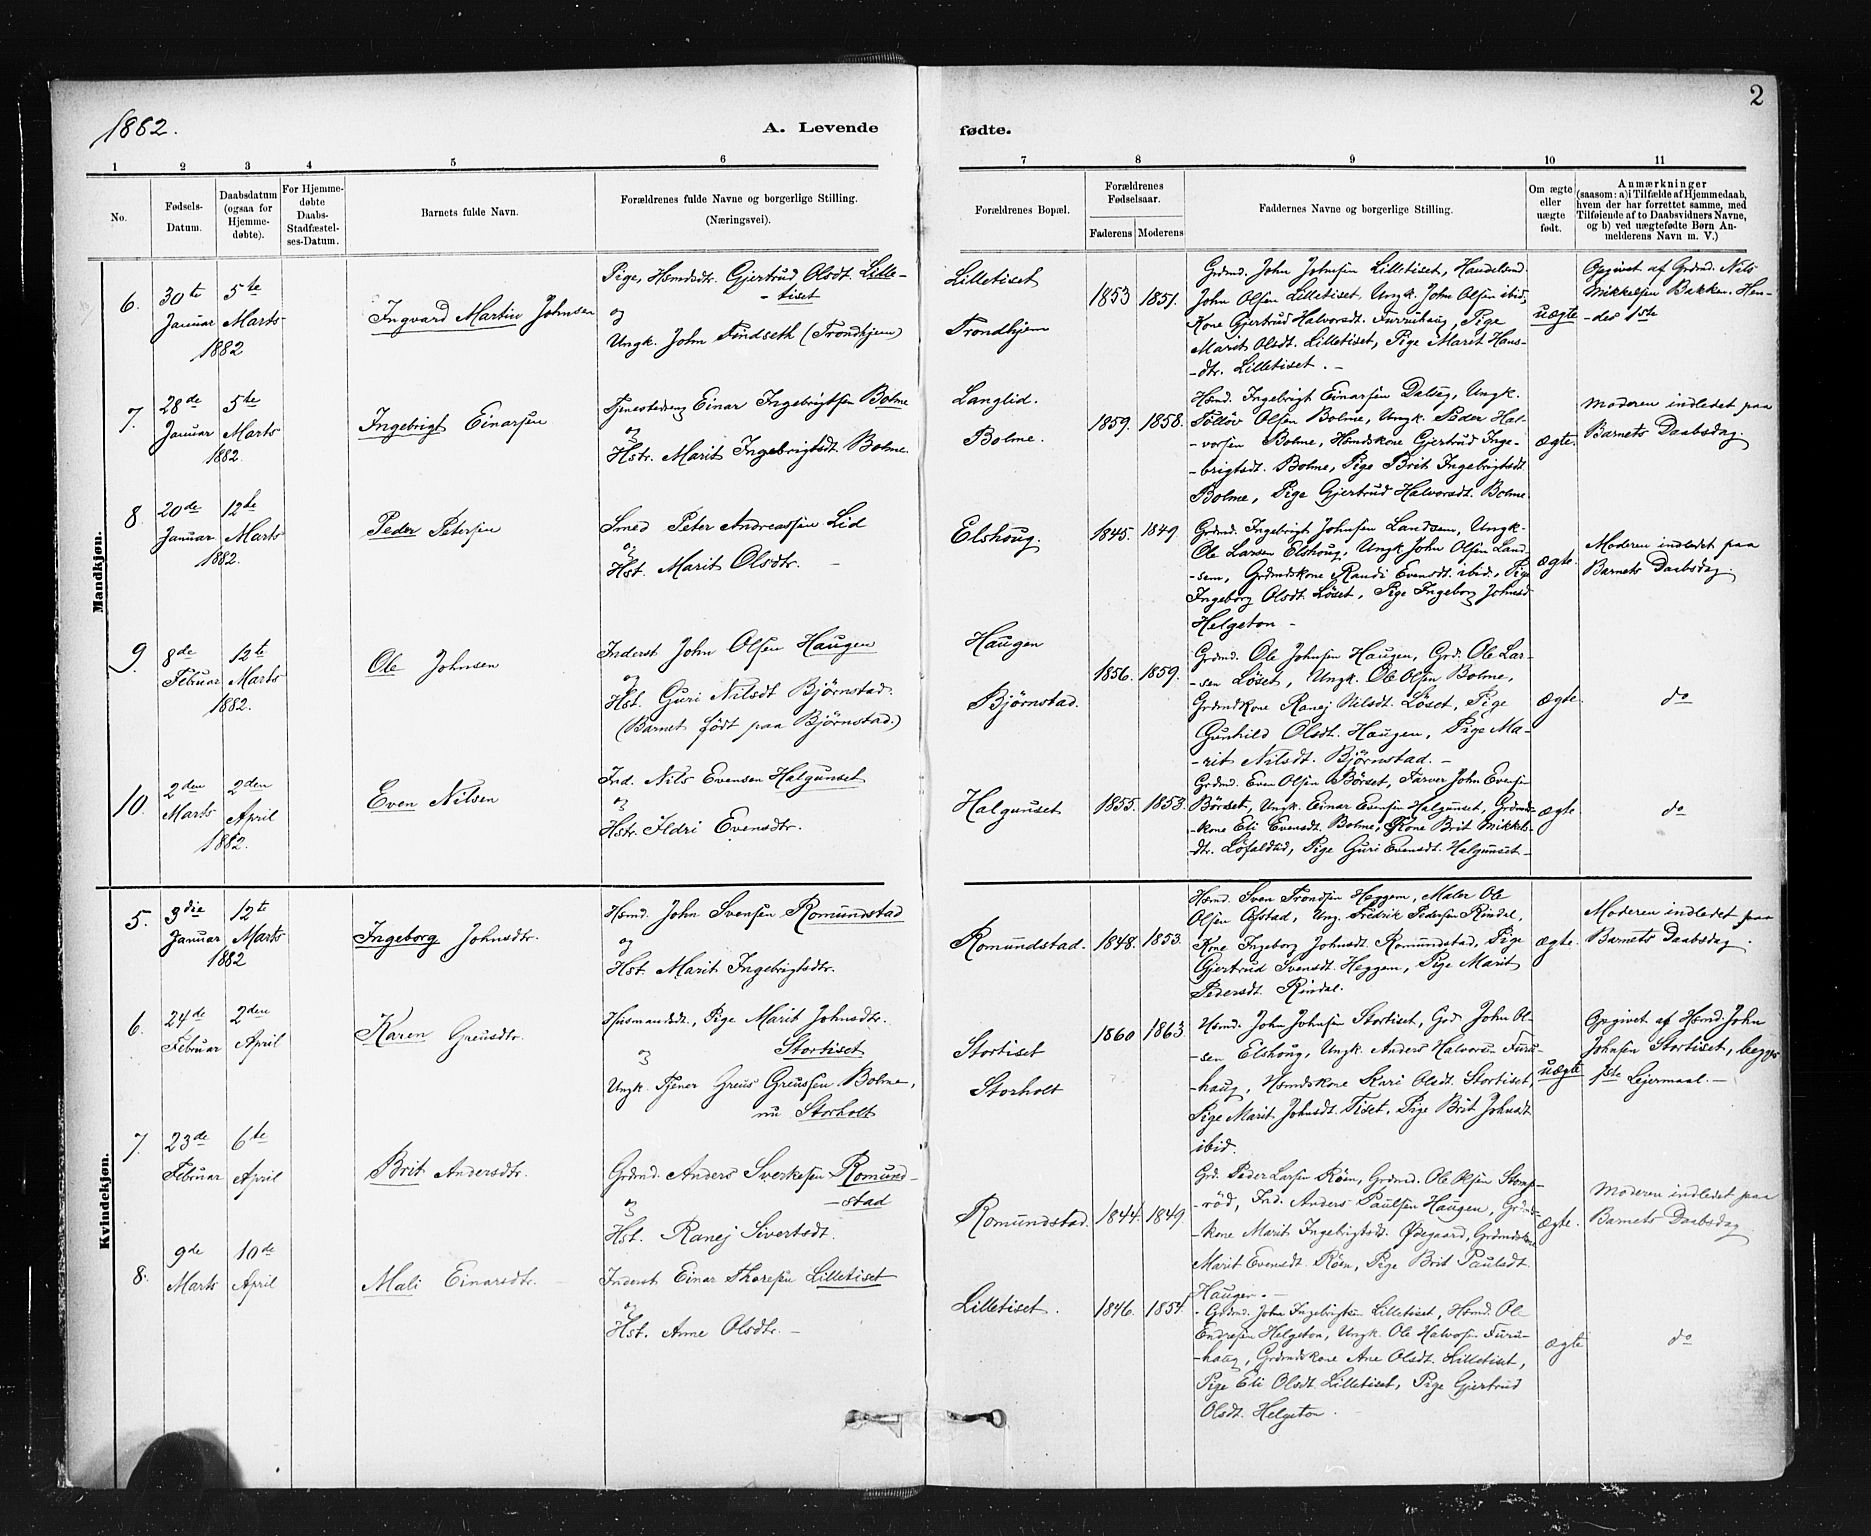 1882.
A. Levende
fødte.
2
1 2 3 4 5 6 7 8 9 10 11
No.
Fødsels-
Datum.
Daabsdatum
(ogsaa for
Hjemme-
døbte).
For Hjemme-
døbte
Daabs-
Stadfæstel-
ses-Datum.
Barnets fulde Navn.
Forældrenes fulde Navne og borgerlige Stilling.
(Næringsvei).
Forældrenes Bopæl.
Forældrenes
Fødselsaar.
Faderens Moderens
Faddernes Navne og borgerlige Stilling.
Om ægte
eller
uægte
født.
Anmærkninger
(saasom: a) i Tilfælde af Hjemmedaab,
hvem der har forrettet samme, med
Tilføiende af to Daabsvidners Navne,
og b) ved uægtefødte Børn An-
melderens Navn m. V.)
Mandkjøn.
6.
30te
Januar
5te
Marts
1882
Ingvard Martin Johnsen
Pige, Hsmdsdtr. Gjertrud Olsdt. Lille-
-tiset
og
Ungk. John Findseth (Trondhjem)
Lilletiset
Trondhjem
1853 1851.
Grdmd. John Johnsen Lilletiset, Handelsmd.
John Olsen Lilletiset, Ungk. John Olsen ibid,
Kone Gjertrud Halvorsdt. Furuhaug, Pige
Marit Olsdt. Lilletiset, Pige Marit Hans-
-dtr. Lilletiset. -
uægte
Opgivet af Grdmd. Nils
Mikkelsen Bakken. Hen-
-des 1ste
7.
28de
Januar
5te
Marts
1882.
Ingebrigt Einarsen
Tjenestedreng Einar Ingebrigtsen Bolme
og
Hstr. Marit Ingebrigtsdt. Bolme.
Langlid.
Bolme.
1859. 1858.
Hsmd. Ingebrigt Einarsen Dalseg, Ungk.
Tollöv Olsen Bolme, Ungk. Peder Hal-
-vorsen Bolme, Hsmdskone Gjertrud Inge-
-brigtsdt. Bolme, Pige Brit Ingebrigtsdt
Bolme, Pige Gjertrud Halvorsdt. Bolme
ægte.
Moderen indledet paa
Barnets Daabsdag.
8.
20de
Januar
12te
Marts
1882.
Peder Petersen
Smed Peter Andreassen Lid
og
Hst. Marit Olsdtr. -
Elshoug.
1845. 1849
Grdmd. Ingebrigt Johnsen Landsem, Ungk.
Ole Larsen Elshoug, Ungk John Olsen Land-
-sem, Grdmdskone Randi Evensdt. ibid., Pige
Ingeborg Olsdt. Løset, Pige Ingeborg Johnsd
Helgeton -
ægte.
Moderen indledet paa
Barnets Daabsdag.
9.
8de
Februar
12te
Marts
1882.
Ole Johnsen
Inderst John Olsen Haugen
og
Hst. Guri Nilsdt Bjørnstad.
(Barnet født paa Bjørnstad.)
Haugen
Bjørnstad.
1856. 1859.
Grdmd. Ole Johnsen Haugen, Grd. Ole Lar-
-sen Løset, Ungk. Ole Olsen Bolme,
Grdmdkone Ranej Nilsdt. Løset, Pige
Gunhild Olsdt. Haugen, Pige Ma-
-rit Nilsdt. Bjørnstad. -
ægte.
do
10.
2den
Marts
2den
April
1882.
Even Nilsen
Ind. Nils Evensen Halgunset
og
Hstr. Ildri Evensdtr.
Halgunset
1855. 1853.
Grdmd. Even Olsen Børset, Farver John Evensen
Børset, Ungk. Einar Evensen Halgunset, Grdmds-
-kone Eli Evensdt. Bolme, Kone Brit Mikkels-
-dtr. Løfaldlid, Pige Guri Evensdt. Halgunset -
ægte
do
Kvindekjøn.
5.
3die
Januar
12te
Marts
1882
Ingeborg Johnsdtr.
Hsmd. John Svensen Romundstad
og
Hst. Marit Ingebrigtsdtr.
Romundstad.
1848. 1853.
Hsmd. Sven Trondsen Heggem, Maler Ole
Olsen Opstad, Ung. Fredrik Pedersen Rindal,
Kone Ingeborg Johnsdt. Romundstad, Pige
Gjertrud Svensdt. Heggem, Pige Marit
Pedersdt. Rindal.
ægte.
Moderen indledet paa
Barnets Daabsdag.
6.
24de
Februar
2den
April
Karen Greusdtr.
Husmandsdt., Pige Marit Johnsdtr.
Stortiset
og
Ungk. Tjener Greus Greussen Bolme,
nu Storholt
Stortiset
Storholt
1860 1863.
Hsmd. John Johnsen Stortiset, Grd. John Ol-
-sen Elshoug, Ungk. Anders Halvorsen Furu-
-haug, Hsmdskone Kari Olsdt. Stortiset,
Pige Marit Johnsdt. Tiset, Pige Brit Johnsdt
ibid.
uægte
Opgivet af Hsmd. John
Johnsen Stortiset, begges
1ste Lejermaal. -
7.
23de
Februar
6te
April
Brit Andersdtr.
Grdmd. Anders Sverkesen Romund-
-stad
og
Hst. Ranej Sivertsdt.
Romundstad.
1844. 1849.
Grd. Peder Larsen Röen, Grdmd. Ole Olsen Stomp-
-röd, Ind. Anders Paulsen Haugen, Grdmds-
-kone Marit Ingebrigtsdt. Ødegaard, Grdmdskone
Marit Evensdt. Röen, Pige Brit Paulsdt.
Haugen. -
ægte.
Moderen indledet paa
Barnets Daabsdag
8.
9de
Marts
10de
April
Mali Einarsdtr. -
Inderst Einar Thoresen Lilletiset
og
Hst. Anne Olsdtr. -
Lilletiset.
1846. 1854.
Grdmd. John Ingebrigtsen Lilletiset, Hsmd. Ole
Endresen Helgeton, Ungk. Ole Halvorsen Furu-
-haug, Grdmdskone Ane Olsdt. Lilletiset,
Pige Eli Olsdt. Lilletiset, Pige Gjertrud
Olsdt. Helgeton.
ægte
do